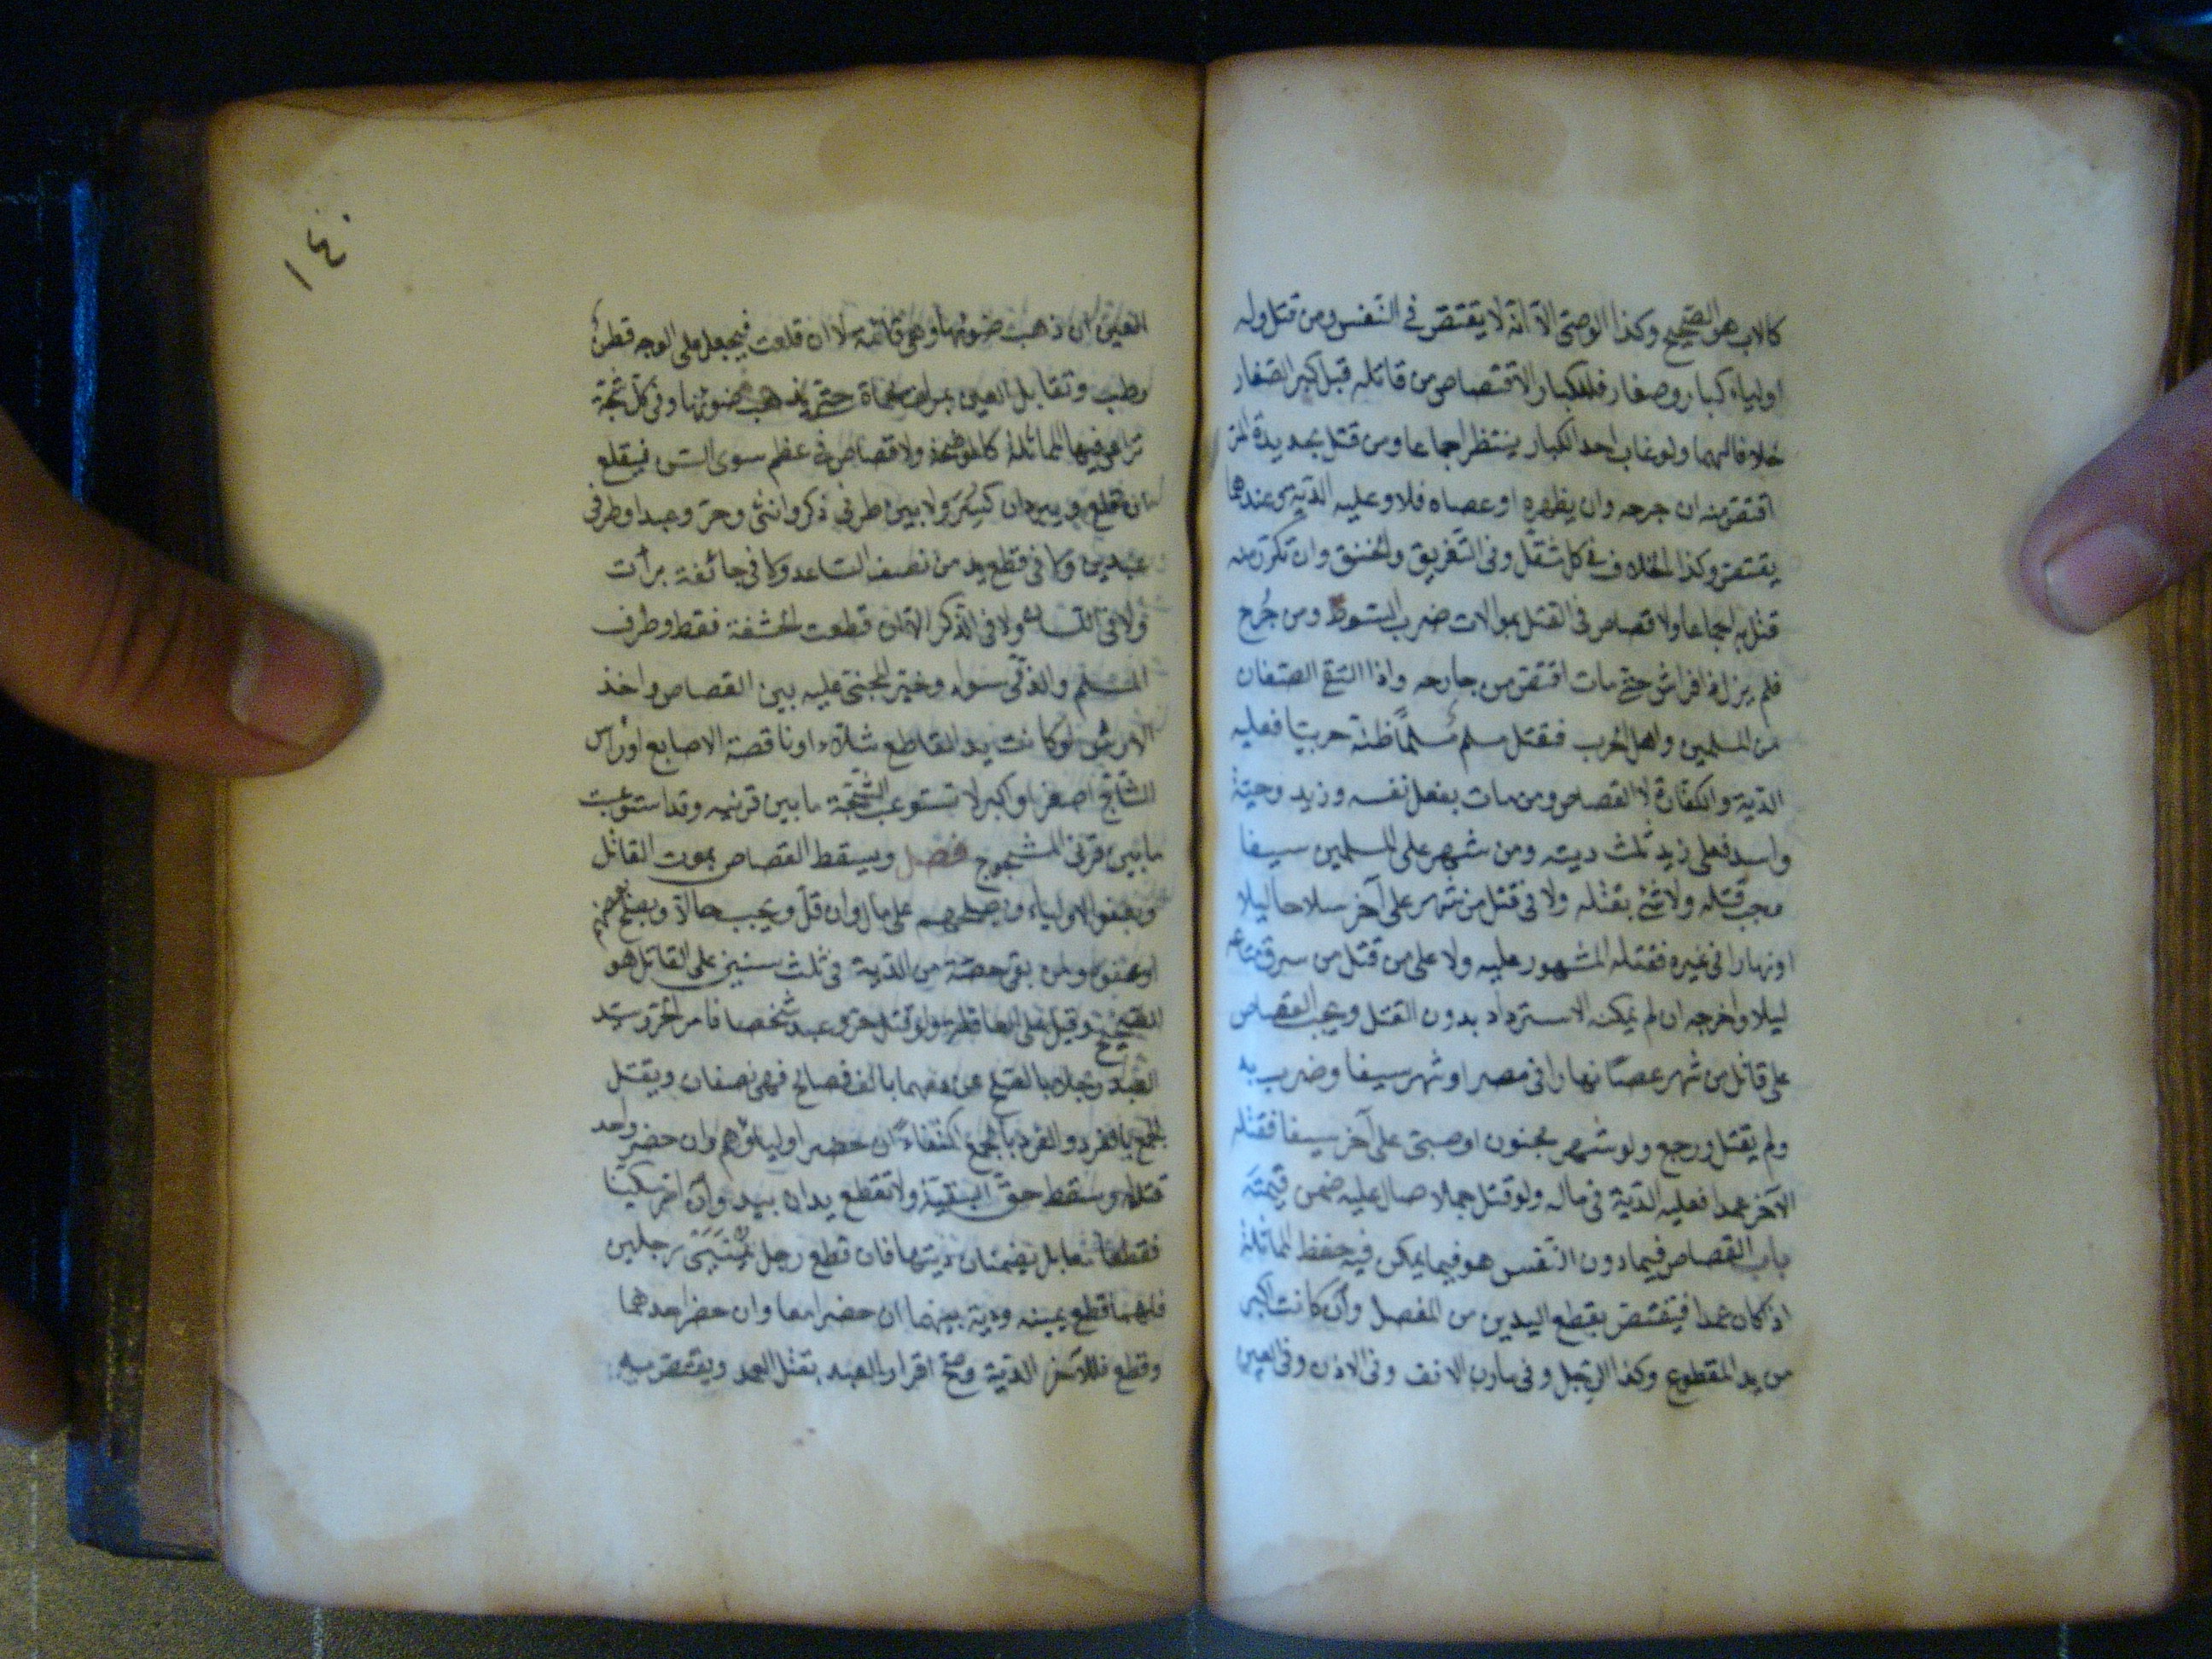 كالاب هو الصحيح وكذا الوصى الا انه لا يقتص فى النفس ومن قتل وله
اولياء كبار وصغار فللكبار الاقتصاص من قاتله قبل كبر الصغار
خلافا لهما ولو غاب احد الكبار ينتظر اجماعا ومن قتل بحديدة المر
اقتص منه ان جرحه وان بظهره او عصاه فلا وعليه الدية وعندهما
يقتص وكذا الخلاف فى كل مثقل وفى التغريق والخنق وان تكرر منه
قتل به اجماعا ولا قصاص فى القتل بموالات ضرب السوط ومن جُرح
فلم يزل ذا فراش حتى مات اقتص من جارحه واذا التقى الصفان
من المسلمين واهل الحرب فقتل مسلم مُسلماً ظنه حربيا فعليه
الدية والكفارة لا القصاص ومن مات بفعل نفسه وزيد وحية
واسد فعلى زيد ثلث ديته ومن شهر على المسلمين سيفا
وجب قتله ولا شئ بقتله ولا فى قتل من شهر على آخر سلاحا ليلا
او نهارا فى غيره فقتله المشهور عليه ولا على من قتل من سرق متاعه
ليلا واخرجه ان لم يمكنه الاسترداد بدون القتل ويجب القصاص
على قاتل من شهر عصًا نهارا فى مصر او شهر سيفا وضرب به
ولم يقتل ورجع ولو شهر مجنون او صبى على آخر سيفا فقتله
الآخر عمدا فعليه الدية فى ماله ولو قتل جملا صال عليه ضمن قيمته
باب القصاص فيما دون النفس هو فيما يمكن فيه حفظ المماثلة
اذ كان عمدا فيقتص بقطع اليدين من المفصل وان كانت اكبر
من يد المقطوع وكذا الرجل وفى مارن الانف وفى الاذن وفى العين
١٤٠
العين ان ذهب ضوئها وهى قائمة لا ان قلعت فيجعل على الوجه قطن
رطب وتقابل العين بمرآة محماة حتى يذهب ضوئها وفى كل شجة
تراعى فيها المماثلة كالموضحة ولا قصاص فى عظم سوى السن فيقلع
ان قلع ويبرد ان كُسِرَ ولا بين طرفى ذكر وانثى وحر وعبد او طرفى
عبدين ولا فى قطع يد من نصف الساعد ولا فى جائفة برأت
ولا فى اللسان ولا فى الذكر الا ان قطعت الحشفة فقط وطرف
المسلم والذمى سواء وخير المجنى عليه بين القصاص واخذ
الارش لو كانت يد القاطع شلاء او ناقصة الاصابع او رأس
الشاج اصغر او اكبر لا تستوعب الشجة ما بين قرنيه وقد استوعبت
ما بين قرنى المشجوج فصل ويسقط القصاص بموت القاتل
وبعفو الاولياء وبصلحهم على مال وان قل ويجب حالا وبصلح بعضهم
او عفوه ولمن بقى حصته من الدية فى ثلث سنين على القاتل هو
الصحيح وقيل على العاقلة ولو قتل حر وعبد شخصا فامر الحر وسيد
العبد رجلا بالصلح عن دمهما بالف فصالح فهى نصفان ويقتل
الجمع بالفرد والفرد بالجمع اكتفاءً ان حضر اولياؤهم وان حضر واحد
قتل له وسقط حق البقية ولا تقطع يدان بيد وان امرّ سكينا
فقطعا معا بل يضمنان ديتها فان قطع رجل يمينَيْ رجلين
فلهما قطع يمينه ودية بينهما ان حضرا معا وان حضر احدهما
وقطع فللآخر الدية وصح اقرار العبد بقتل العمد ويقتص به